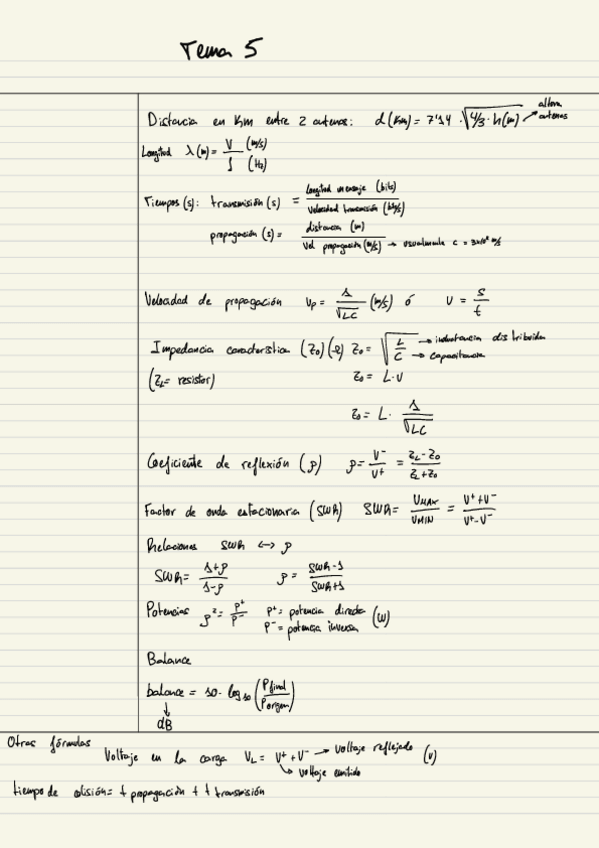 Tema 5
Distancia en Km entre 2 antenas: d(Km) = 7'14 · √(4/3 · h(m)) → altura antenas
Longitud λ(m) = V (m/s) / f (Hz)
Tiempos (s): transmisión (s) = longitud mensaje (bits) / velocidad transmisión (bits/s)
propagación (s) = distancia (m) / vel propagación (m/s) → usualmente c = 3x10⁸ m/s
Velocidad de propagación Vp = 1/√LC (m/s) ó v = s/t
Impedancia característica (Z₀) (Ω) Z₀ = √(L/C) → inductancia distribuida → capacitancia
(ZL = resistor) Z₀ = L·v
Z₀ = L · 1/√LC
Coeficiente de reflexión (ρ) ρ = V⁻/V⁺ = (ZL - Z₀)/(ZL + Z₀)
Factor de onda estacionaria (SWR) SWR = VMAX/VMIN = (V⁺ + V⁻)/(V⁺ - V⁻)
Relaciones SWR ↔ ρ
SWR = (1+ρ)/(1-ρ) ρ = (SWR-1)/(SWR+1)
Potencias ρ² = P⁺/P⁻ P⁺ = potencia directa (W)
P⁻ = potencia inversa
Balance
balance = 10 · log₁₀ (Pfinal/Porigen)
↓
dB
Otras fórmulas
Voltaje en la carga VL = V⁺ + V⁻ → voltaje reflejado (V)
↳ voltaje emitido
tiempo de colisión = t propagación + t transmisión